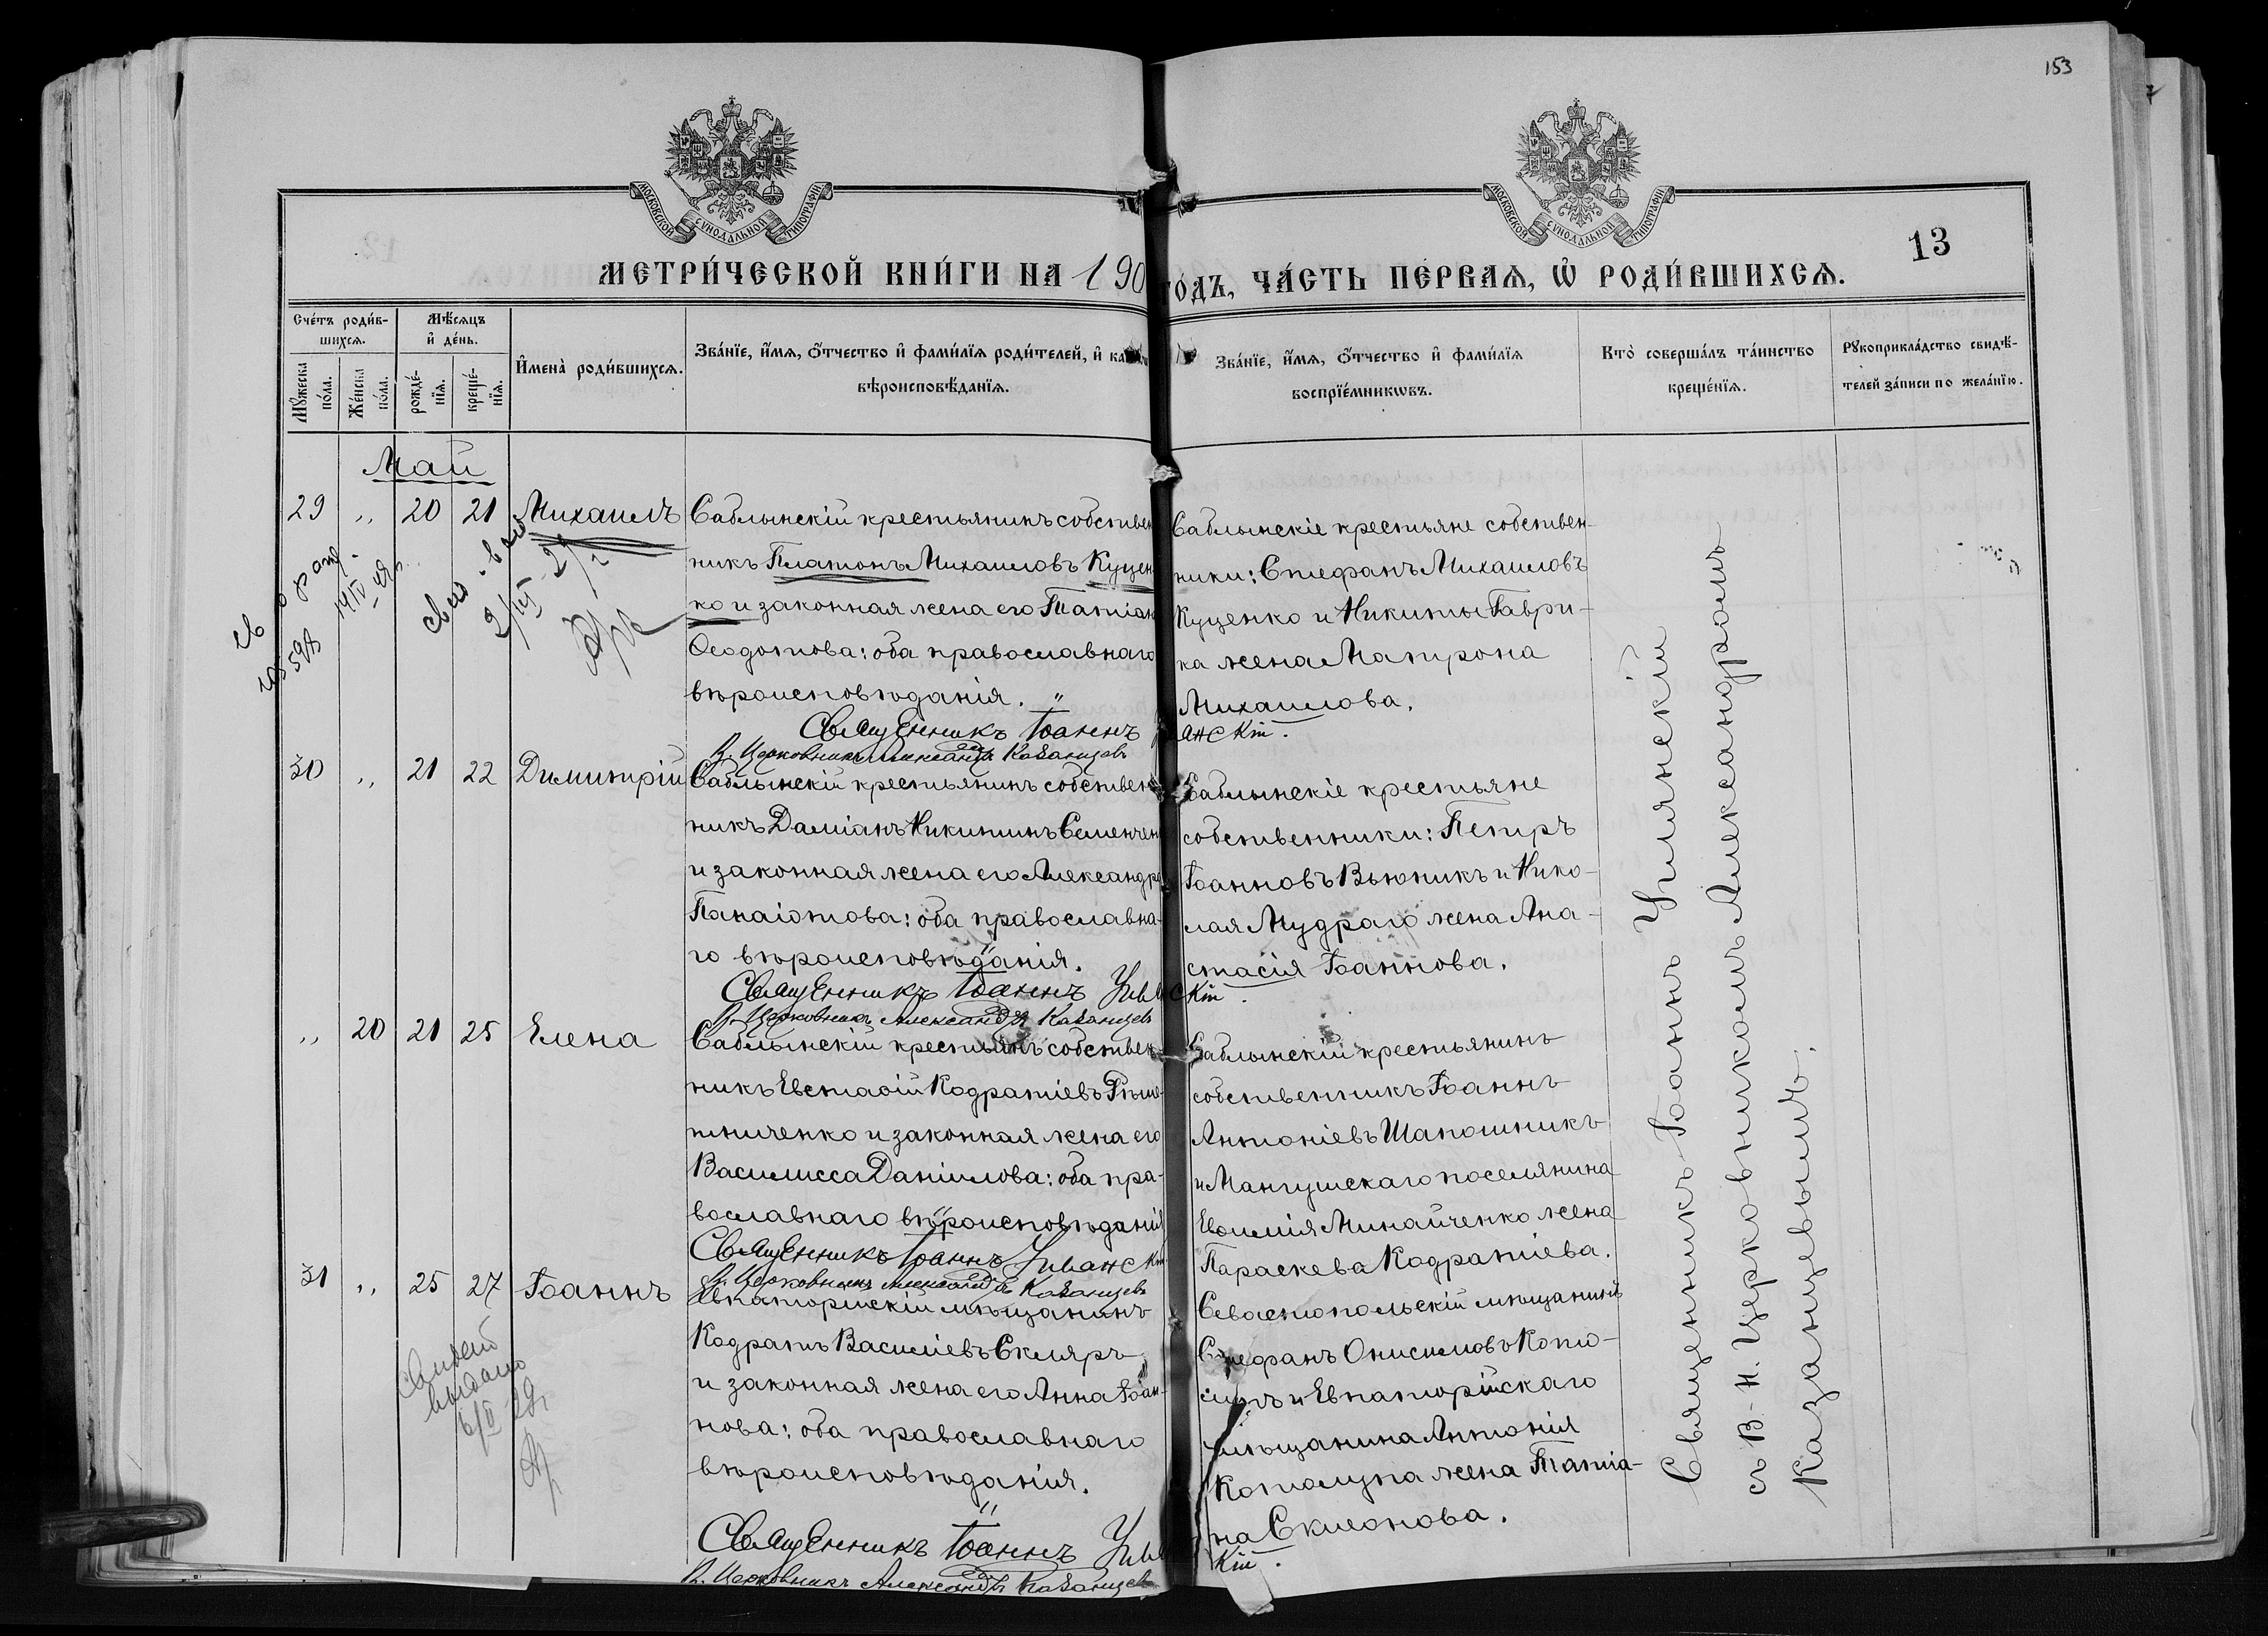 153
МОСКОВСКОЙ СѴНОДАЛЬНОЙ ТИПОГРАФІИ
МОСКОВСКОЙ СѴНОДАЛЬНОЙ ТИПОГРАФІИ
13
МЕТРИ́ЧЕСКОЙ КНИ́ГИ НА 190
ГО́ДЪ, ЧА́СТЬ ПЕ́РВАѦ, Ѽ РОДИ́ВШИХСѦ.
Сче́тъ роди́в-
шихсѧ.
Мꙋжеска по́ла.
Же́нска по́ла.
Мѣ́сѧцъ
и҆ де́нь.
рожде́-
нїѧ.
креще́-
нїѧ.
И҆мена̀ роди́вшихсѧ.
Зва́нїе, и҆́мѧ, ѻ҆́тчество и҆ фами́лїѧ роди́телей, и҆ ка
вѣроисповѣ́данїѧ.
Зва́нїе, и҆́мѧ, ѻ҆́тчество и҆ фами́лїѧ
воспрїе́мникѡвъ.
Кто̀ соверша́лъ та́инство
креще́нїѧ.
Рꙋкоприкла́дство свидѣ́-
телей за́писи по жела́нїю.
Май
29 " 20 21 Михаилъ
Саблынскій крестьянинъ собствен
никъ Платонъ Михаиловъ Куцен
ко и законная жена его Татіан
Ѳеодотова: оба православнаго
вѣроисповѣданія.
Священникъ Іоаннъ
В. Церковникъ Александръ Казанцевъ
Саблынскіе крестьяне собствен-
ники: Стефанъ Михаиловъ
Куценко и Никиты Гаври-
ка жена Матрона
Михаилова.
анскій.
30 " 21 22 Димитрій
Саблынскій крестьянинъ собствен
никъ Даміанъ Никитинъ Семенчен
и законная жена его Александра
Панаіотова: оба православна-
го вѣроисповѣданія.
Священникъ Іоаннъ
В. Церковникъ Александръ Казанцевъ
Саблынскіе крестьяне
собственники: Петръ
Іоанновъ Вьюникъ и Нико-
лая Мудраго жена Ана-
стасія Іоаннова.
скій.
" 20 21 25 Елена
Саблынскій крестьянъ собствен
никъ Евстаѳій Кодратіевъ Рѣше-
тниченко и законная жена его
Василисса Даніилова: оба пра-
вославнаго вѣроисповѣданія
Священникъ Іоаннъ
В. Церковникъ Александръ Казанцевъ
Саблынскій крестьянинъ
собственникъ Іоаннъ
Антоніевъ Шапошникъ
и Мангушскаго поселянина
Евѳимія Минайченко жена
Параскева Кодратіева.
31 " 25 27 Іоаннъ
Евпаторійскій мѣщанинъ
Кодратъ Василіевъ Скляръ
и законная жена его Анна Іоан-
нова: оба православнаго
вѣроисповѣданія.
Священникъ Іоаннъ
В. Церковникъ Александръ Казанцевъ
Севастопольскій мѣщанинъ
Стефанъ Онисимовъ
и Евпаторійскаго
мѣщанина Антонія
Котолупа жена Татіа-
на
кій.
Священникъ Іоаннъ
съ В-И. Церковникомъ Александромъ
Казанцевымъ.